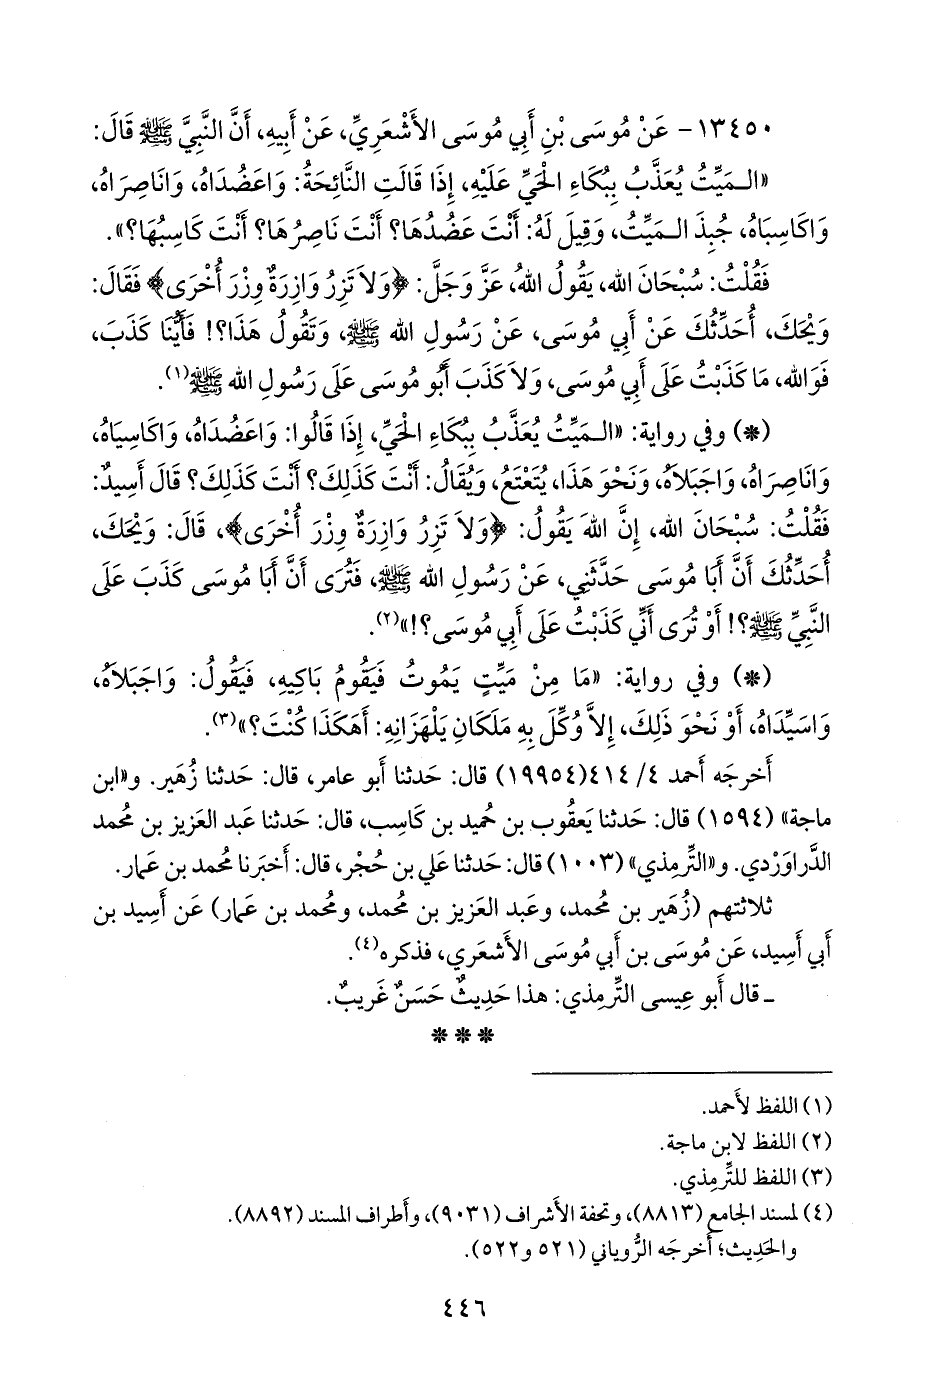 ١٣٤٥٠- عَنْ مُوسَى بْنِ أَبِي مُوسَى الأَشْعَرِيِّ، عَنْ أَبِيهِ، أَنَّ النَّبِيَّ ﷺ قَالَ:
«الـمَيِّتُ يُعَذَّبُ بِبُكَاءِ الْحَيِّ عَلَيْهِ، إِذَا قَالَتِ النَّائِحَةُ: وَاعَضُدَاهُ، وَانَاصِرَاهُ،
وَاكَاسِبَاهُ، جُبِذَ الـمَيِّتُ، وَقِيلَ لَهُ: أَنْتَ عَضُدُهَا؟ أَنْتَ نَاصِرُهَا؟ أَنْتَ كَاسِبُهَا؟».
فَقُلْتُ: سُبْحَانَ الله، يَقُولُ اللهُ، عَزَّ وَجَلَّ: ﴿وَلاَ تَزِرُ وَازِرَةٌ وِزْرَ أُخْرَى﴾ فَقَالَ:
وَيْحَكَ، أُحَدِّثُكَ عَنْ أَبِي مُوسَى، عَنْ رَسُولِ الله ﷺ، وَتَقُولُ هَذَا؟! فَأَيُّنَا كَذَبَ،
فَوَالله، مَا كَذَبْتُ عَلَى أَبِي مُوسَى، وَلاَ كَذَبَ أَبُو مُوسَى عَلَى رَسُولِ الله ﷺ(١).
(*) وفي رواية: «الـمَيِّتُ يُعَذَّبُ بِبُكَاءِ الْحَيِّ، إِذَا قَالُوا: وَاعَضُدَاهُ، وَاكَاسِيَاهُ،
وَانَاصِرَاهُ، وَاجَبَلاَهُ، وَنَحْوَ هَذَا، يُتَعْتَعُ، وَيُقَالُ: أَنْتَ كَذَلِكَ؟ أَنْتَ كَذَلِكَ؟ قَالَ أَسِيدٌ:
فَقُلْتُ: سُبْحَانَ الله، إِنَّ اللهَ يَقُولُ: ﴿وَلاَ تَزِرُ وَازِرَةٌ وِزْرَ أُخْرَى﴾، قَالَ: وَيْحَكَ،
أُحَدِّثُكَ أَنَّ أَبَا مُوسَى حَدَّثَنِي، عَنْ رَسُولِ الله ﷺ، فَتُرَى أَنَّ أَبَا مُوسَى كَذَبَ عَلَى
النَّبِيِّ ﷺ؟! أَوْ تُرَى أَنِّي كَذَبْتُ عَلَى أَبِي مُوسَى؟!»(٢).
(*) وفي رواية: «مَا مِنْ مَيِّتٍ يَمُوتُ فَيَقُومُ بَاكِيهِ، فَيَقُولُ: وَاجَبَلاَهُ،
وَاسَيِّدَاهُ، أَوْ نَحْوَ ذَلِكَ، إِلاَّ وُكِّلَ بِهِ مَلَكَانِ يَلْهَزَانِهِ: أَهَكَذَا كُنْتَ؟»(٣).
أَخرجَه أَحمد ٤/ ٤١٤(١٩٩٥٤) قال: حَدثنا أَبو عامر، قال: حَدثنا زُهَير. و«ابن
ماجة» (١٥٩٤) قال: حَدثنا يَعقُوب بن حُميد بن كَاسِب، قال: حَدثنا عَبد العَزيز بن مُحمد
الدَّراوَرْدي. و«التِّرمِذي» (١٠٠٣) قال: حَدثنا علي بن حُجْر، قال: أَخبَرنا مُحمد بن عمار.
ثلاثتهم (زُهَير بن مُحمد، وعَبد العَزيز بن مُحمد، ومُحمد بن عمار) عَن أَسِيد بن
أَبي أَسِيد، عَن مُوسَى بن أَبي مُوسَى الأَشعَري، فذكره(٤).
ـ قال أَبو عِيسى التِّرمِذي: هذا حَدِيثٌ حَسَنٌ غَرِيبٌ.
* * *
(١) اللفظ لأَحمد.
(٢) اللفظ لابن ماجة.
(٣) اللفظ للتِّرمِذي.
(٤) المسند الجامع (٨٨١٣)، وتحفة الأَشراف (٩٠٣١)، وأَطراف المسند (٨٨٩٢).
والحَدِيث؛ أَخرجَه الرُّوياني (٥٢١ و٥٢٢).
٤٤٦